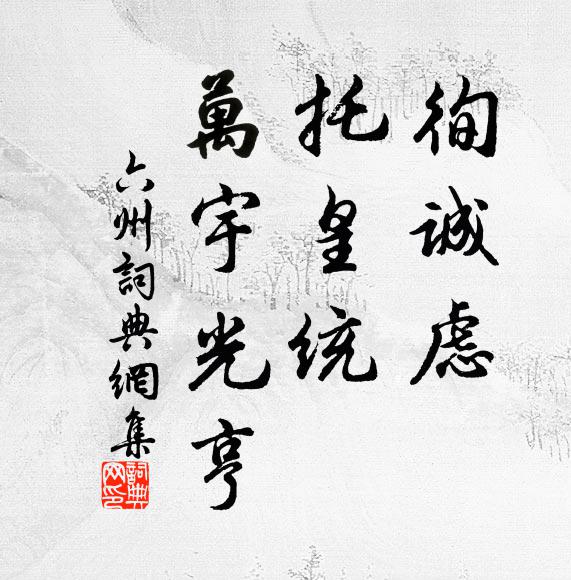 徇誠慮
托皇統
萬宇光亨
六州詞典網集
詞典网印